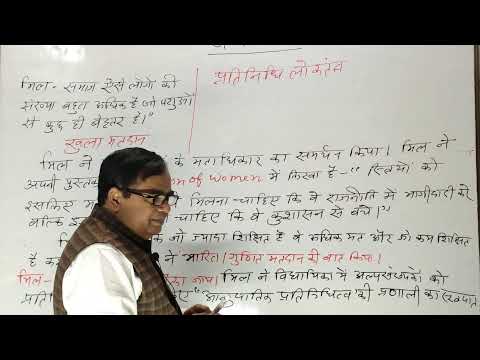 प्रतिनिधि लोकतंत्र
मिल - समाज ऐसे लोगों की
संख्या बहुत अधिक है जो पशुओं
से कुछ ही बेहतर है।"
खुला मतदान
मिल ने के मताधिकार का समर्थन किया। मिल ने
अपनी पुस्तक of Women में लिखा है - "स्त्रियों को
इसलिए मिलना चाहिए कि वे राजनीति में भागीदारी
बल्कि चाहिए कि वे कुशासन से बचे।"
कि जो ज्यादा शिक्षित है वे अधिक मत और जो कम शिक्षित
है ने भारित/गुणित मतदान की बात किया।
मिल- मिल ने विधायिका में अल्पसंख्यकों को
आनुपातिक प्रतिनिधित्व की प्रणाली का